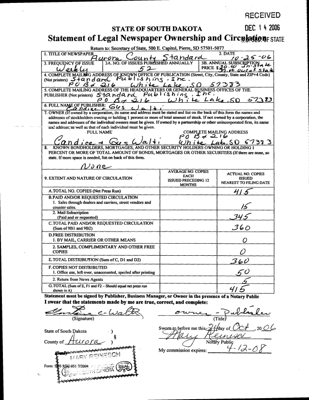 RECEIVED
DEC 14 2006
STATE OF SOUTH DAKOTA
Statement of Legal Newspaper Ownership and Circulation
Return to: Secretary of State, 500 E. Capitol, Pierre, SD 57501-5077
1. TITLE OF NEWSPAPER Aurora County Standard
2. DATE 10-25-06
3. FREQUENCY OF ISSUE Weekly
3A. NO. OF ISSUES PUBLISHED ANNUALLY 52
3B. ANNUAL SUBSCRIPTION PRICE
4. COMPLETE MAILING ADDRESS OF KNOWN OFFICE OF PUBLICATION (Street, City, County, State and ZIP+4 Code)
(Not printers) Standard Publishing, Inc.
PO Box 216 White Lake SD 57383
5. COMPLETE MAILING ADDRESS OF THE HEADQUARTERS OR GENERAL BUSINESS OFFICES OF THE
PUBLISHER (Not printers) Standard Publishing, Inc.
PO Box 216 White Lake, SD 57383
6. FULL NAME OF PUBLISHER: Gus Walti
7. OWNER (If owned by a corporation, its name and address must be stated and also listed on the back of this form the names and
addresses of stockholders owning or holding 1 percent or more of total amount of stock. If not owned by a corporation, the
names and addresses of the individual owners must be given. If owned by a partnership or other unincorporated firm, its name
and address, as well as that of each individual must be given.
FULL NAME COMPLETE MAILING ADDRESS
PO Box 216
Candice & Gus Walti White Lake, SD 57383
8. KNOWN BONDHOLDERS, MORTGAGEES, AND OTHER SECURITY HOLDERS OWNING OR HOLDING 1
PERCENT OR MORE OF TOTAL AMOUNT OF BONDS, MORTGAGES OR OTHER SECURITIES (If there are none, so
state. If more space is needed, list on back of this form.
None
9. EXTENT AND NATURE OF CIRCULATION
AVERAGE NO. COPIES EACH ISSUE PRECEDING 12 MONTHS
ACTUAL NO. COPIES ISSUED NEAREST TO FILING DATE
A. TOTAL NO. COPIES (Net Press Run) 415
B. PAID AND/OR REQUESTED CIRCULATION
1. Sales through dealers and carriers, street vendors and
counter sales. 15
2. Mail Subscription
(Paid and or requested) 345
C. TOTAL PAID AND/OR REQUESTED CIRCULATION
(Sum of 9B1 and 9B2) 360
D. FREE DISTRIBUTION
1. BY MAIL, CARRIER OR OTHER MEANS 0
2. SAMPLES, COMPLIMENTARY AND OTHER FREE
COPIES 0
E. TOTAL DISTRIBUTION (Sum of C, D1 and D2) 360
F. COPIES NOT DISTRIBUTED
1. Office use, left over, unaccounted, spoiled after printing 50
2. Return from News Agents 5
G. TOTAL (Sum of E, F1 and F2 - Should equal net press run
shown in A) 415
Statement must be signed by Publisher, Business Manager, or Owner in the presence of a Notary Public
I swear that the statements made by me are true, correct, and complete:
owner - Publisher
(Signature) (Title)
State of South Dakota )
County of Aurora )
Sworn to before me this day of Oct, 2006
Notary Public
My commission expires: 4-12-08